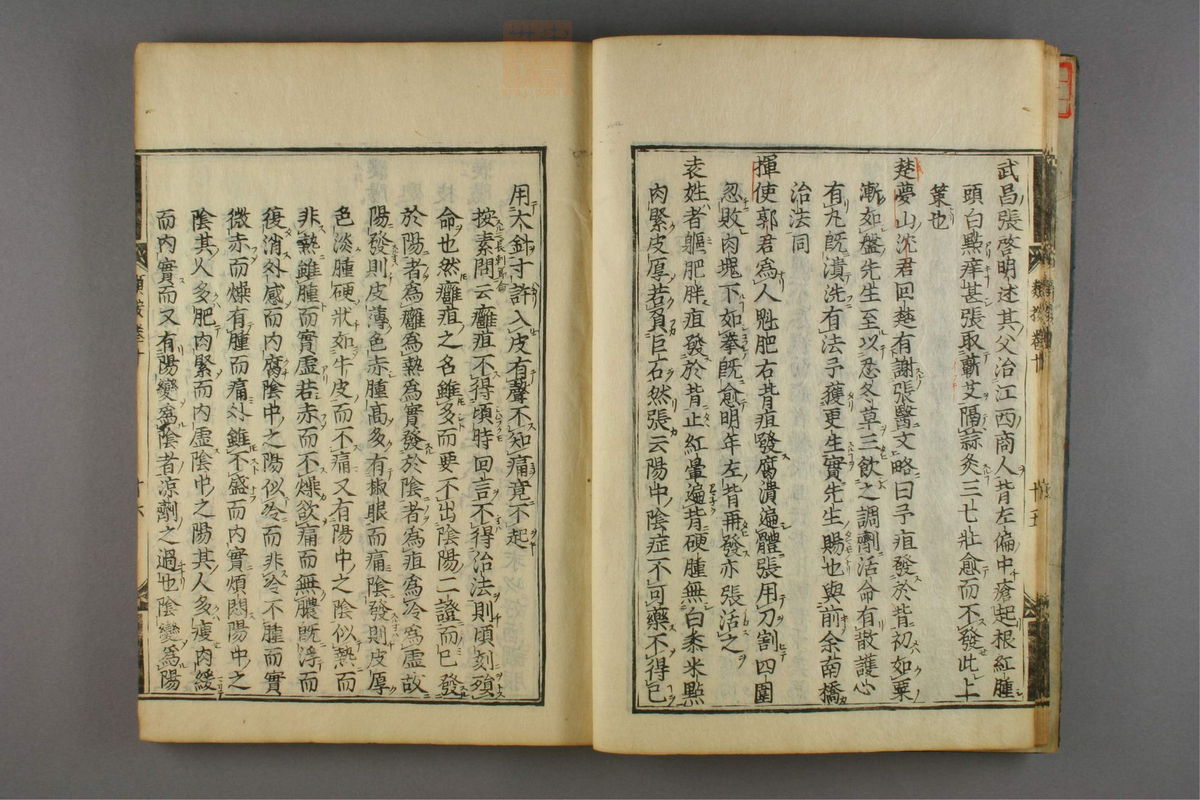 武昌張啓明述其父治江西商人背左偏中瘡起根紅腫
頭白㸃痒甚張取蘄艾隔蒜灸三七壯愈而不發此上
策也
楚夢山沈君回楚有謝張醫文略曰予疽發於背初如粟
漸如盤先生至以忍冬草三飲之調劑活命有散護心
有丸既潰洗有法予獲更生實先生賜也與前余南橋
治法同
揮使郭君爲人魁肥右背疽發腐潰遍體張用刀割四圍
忽敗肉塊下如拳既愈明年左背再發亦張活之
袁姓者軀肥胖疽發於背止紅暈遍背硬腫無白黍米㸃
肉緊皮厚若負巨石然張云陽中陰症不可藥不得已
用大針寸許入皮有聲不知痛竟不起
按素問云癰疽不得頃時回言不得治法則頃刻殞
命也然癰疽之名雖多而要不出陰陽二證而已發
於陽者為癰為熱為實發於陰者為疽為冷為虛故
陽發則皮薄色赤腫高多有椒眼而痛陰發則皮厚
色淡腫硬狀如牛皮而不痛又有陽中之陰似熱而
非熱雖腫而實虛若赤而不燥欲痛而無膿既浮而
復消外感而內腐陰中之陽似冷而非冷不腫而實
微赤而燥有腫而痛外雖不盛而內實煩悶陽中之
陰其人多肥肉緊而內虛陰中之陽其人多瘦肉緩
而內實而又有陽變為陰者涼劑之過也陰變為陽